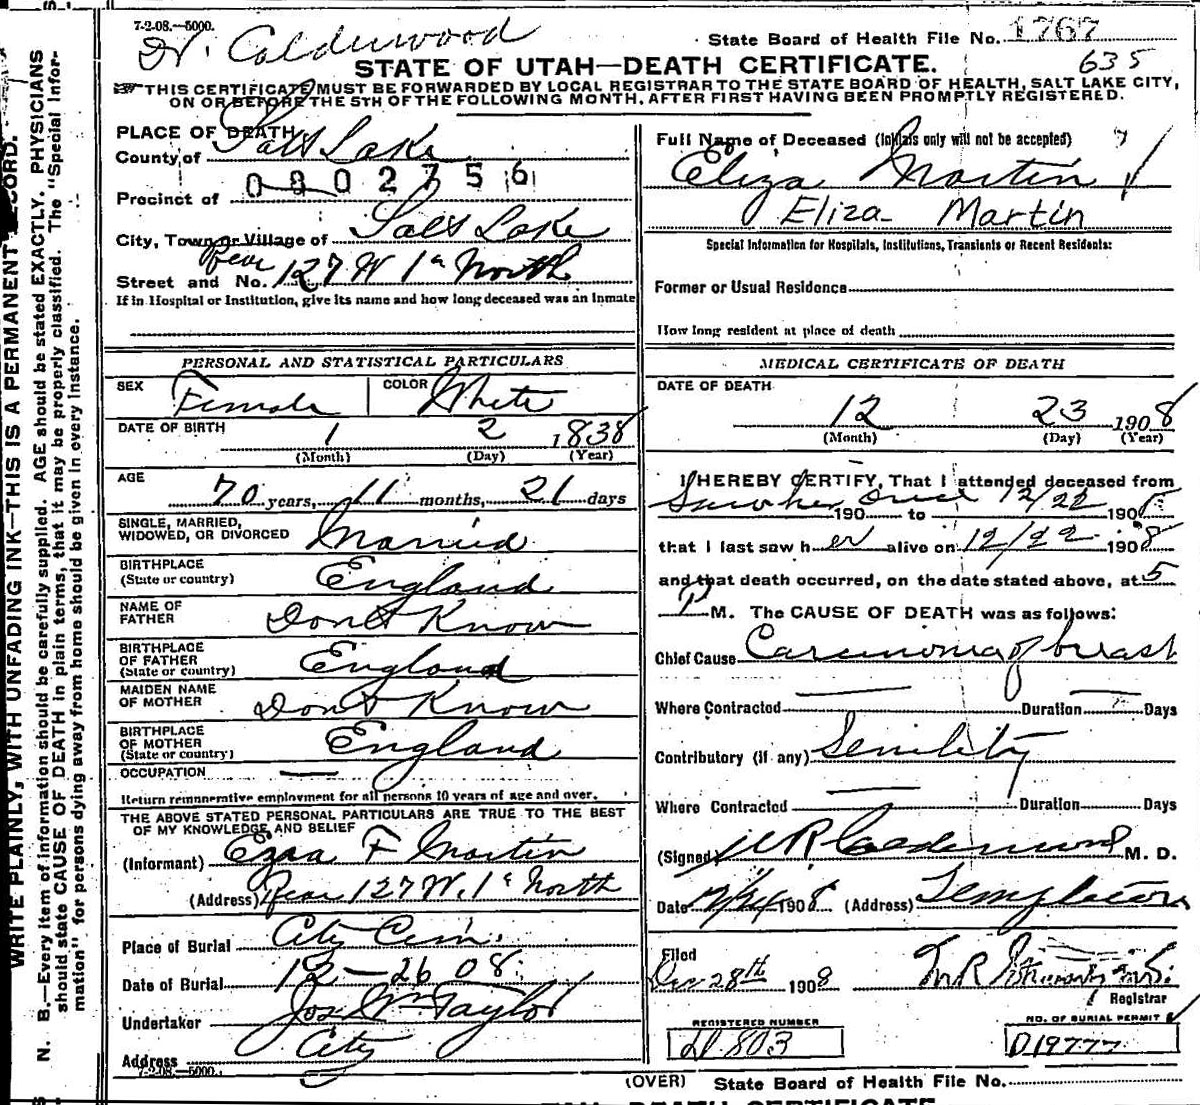 7-2-08.—5000.
Dr. Calderwood
State Board of Health File No. 1767
635
STATE OF UTAH—DEATH CERTIFICATE.
THIS CERTIFICATE MUST BE FORWARDED BY LOCAL REGISTRAR TO THE STATE BOARD OF HEALTH, SALT LAKE CITY,
ON OR BEFORE THE 5TH OF THE FOLLOWING MONTH, AFTER FIRST HAVING BEEN PROMPTLY REGISTERED.
WRITE PLAINLY, WITH UNFADING INK—THIS IS A PERMANENT RECORD.
N. B.—Every item of information should be carefully supplied. AGE should be stated EXACTLY. PHYSICIANS
should state CAUSE OF DEATH in plain terms, that it may be properly classified. The "Special Infor-
mation" for persons dying away from home should be given in every instance.
PLACE OF DEATH
County of Salt Lake
0802756
Precinct of
City, Town or Village of Salt Lake
Street and No. Rear 127 W 1st North
If in Hospital or Institution, give its name and how long deceased was an Inmate
Full Name of Deceased (Initials only will not be accepted)
Eliza Martin
Eliza Martin
Special Information for Hospitals, Institutions, Transients or Recent Residents:
Former or Usual Residence
How long resident at place of death
PERSONAL AND STATISTICAL PARTICULARS
SEX Female COLOR White
DATE OF BIRTH 1 2 1838
(Month) (Day) (Year)
AGE 70 years, 11 months, 21 days
SINGLE, MARRIED,
WIDOWED, OR DIVORCED Married
BIRTHPLACE
(State or country) England
NAME OF
FATHER Dont Know
BIRTHPLACE
OF FATHER
(State or country) England
MAIDEN NAME
OF MOTHER Dont Know
BIRTHPLACE
OF MOTHER
(State or country) England
OCCUPATION —
Return remunerative employment for all persons 10 years of age and over.
THE ABOVE STATED PERSONAL PARTICULARS ARE TRUE TO THE BEST
OF MY KNOWLEDGE AND BELIEF
(Informant) Ezra F Martin
(Address) Rear 127 W. 1st North
Place of Burial City Cem.
Date of Burial 12-26 08
Undertaker Jos Wm Taylor
Address City
7-2-08.—5000.
MEDICAL CERTIFICATE OF DEATH
DATE OF DEATH
12 23 1908
(Month) (Day) (Year)
I HEREBY CERTIFY, That I attended deceased from
Saw her once 190 to 12/22 1908
that I last saw her alive on 12/22 1908
and that death occurred, on the date stated above, at 5
P M. The CAUSE OF DEATH was as follows:
Chief Cause Carcinoma of breast
Where Contracted — Duration — Days
Contributory (if any) Senility
Where Contracted — Duration Days
(Signed) W R Calderwood M. D.
Date 12/24 1908 (Address) Templeton
Filed
Dec 28th 1908
Registrar
REGISTERED NUMBER
D 803
NO. OF BURIAL PERMIT
D19777
(OVER) State Board of Health File No.